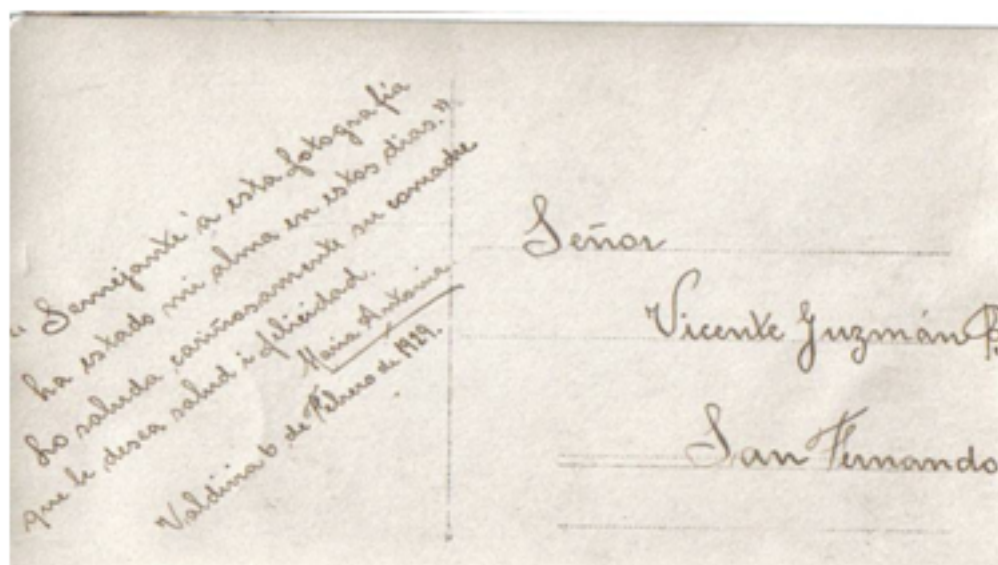 "Semejante á esta fotografia
ha estado mi alma en estos dias."
Lo saluda cariñosamente su comadre
que le desea salud i felicidad.
Maria Antonia
Valdivia 6 de Febrero de 1929.
Señor
Vicente Guzmán
San Fernando